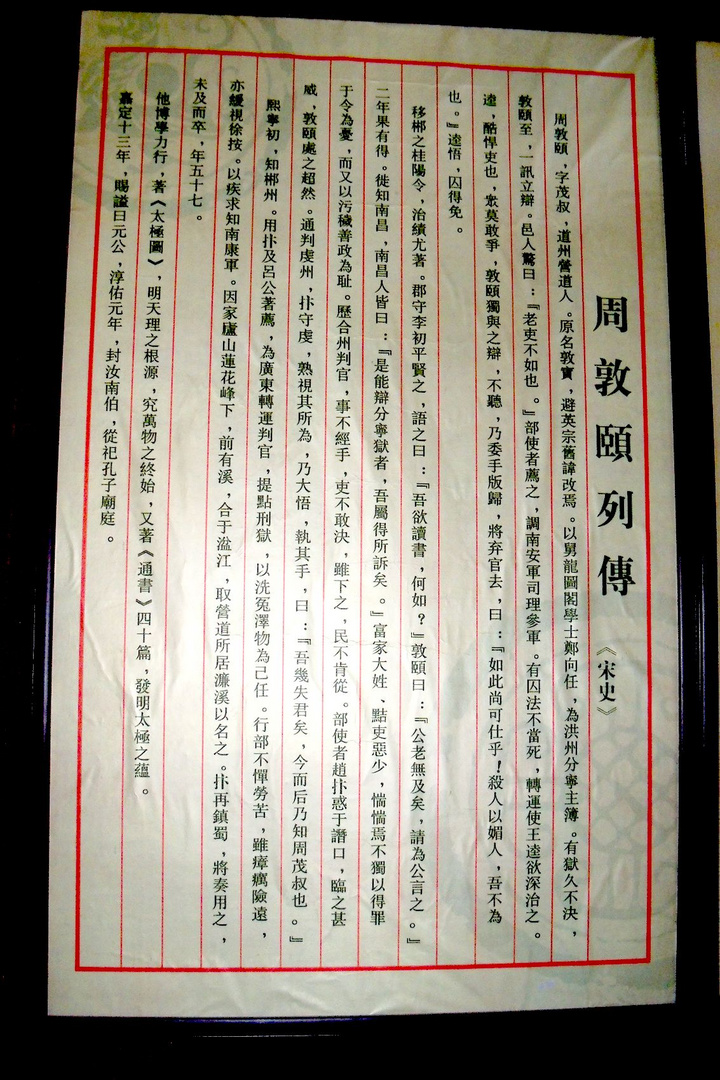 周敦頤列傳《宋史》
周敦頤，字茂叔，道州營道人。原名敦實，避英宗舊諱改焉。以舅龍圖閣學士鄭向任，為洪州分寧主簿。有獄久不決，
敦頤至，一訊立辯。邑人驚曰：『老吏不如也。』部使者薦之，調南安軍司理參軍。有囚法不當死，轉運使王逵欲深治之。
逵，酷悍吏也，眾莫敢爭，敦頤獨與之辯，不聽，乃委手版歸，將弃官去，曰：『如此尚可仕乎！殺人以媚人，吾不為
也。』逵悟，囚得免。
移郴之桂陽令，治績尤著。郡守李初平賢之，語之曰：『吾欲讀書，何如？』敦頤曰：『公老無及矣，請為公言之。』
二年果有得。徙知南昌，南昌人皆曰：『是能辯分寧獄者，吾屬得所訴矣。』富家大姓、黠吏惡少，惴惴焉不獨以得罪
于令為憂，而又以污穢善政為耻。歷合州判官，事不經手，吏不敢決，雖下之，民不肯從。部使者趙抃惑于譖口，臨之甚
威，敦頤處之超然。通判虔州，抃守虔，熟視其所為，乃大悟，執其手，曰：『吾幾失君矣，今而后乃知周茂叔也。』
熙寧初，知郴州。用抃及呂公著薦，為廣東轉運判官，提點刑獄，以洗冤澤物為己任。行部不憚勞苦，雖瘴癘險遠，
亦緩視徐按。以疾求知南康軍。因家廬山蓮花峰下，前有溪，合于湓江，取營道所居濂溪以名之。抃再鎮蜀，將奏用之，
未及而卒，年五十七。
他博學力行，著《太極圖》，明天理之根源，究萬物之終始，又著《通書》四十篇，發明太極之蘊。
嘉定十三年，賜謚曰元公，淳佑元年，封汝南伯，從祀孔子廟庭。